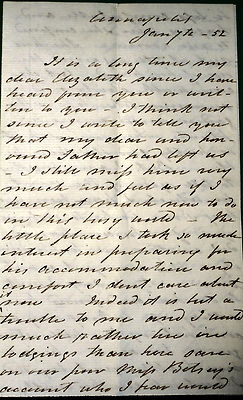 Annapolis
Jan 7th - 52
It is a long time my
dear Elizabeth since I have
heard from you or writ-
ten to you - I think not
since I wrote to tell you
that my dear and hon-
oured Father had left us
- I still miss him very
much and feel as if I
have not much now to do
in this busy world - The
little place I took so much
interest in preparing for
his accommodation and
comfort I dont care about
now Indeed it is but a
trouble to me and I would
much rather live in
lodgings than here save
on our poor Miss Betsey's
account who I fear would